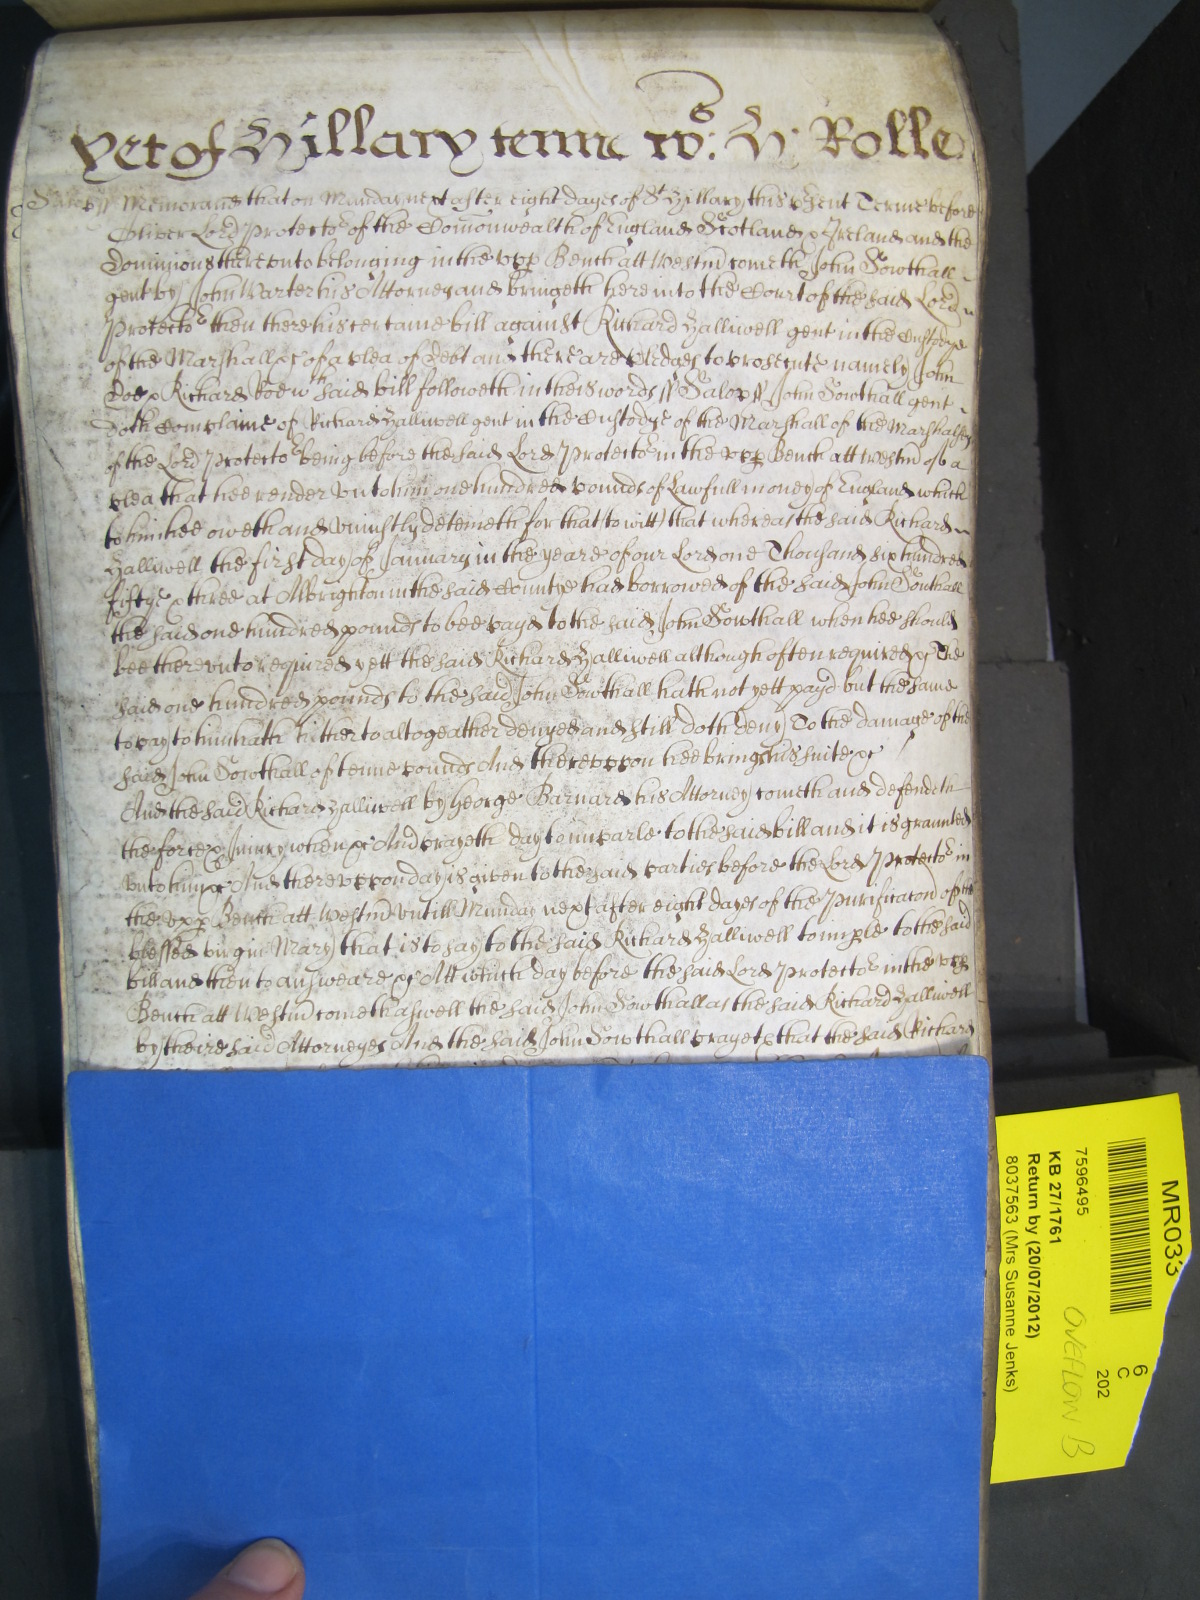 Yet of Hillary terme wᵗʰ: H: Rolle
Salop ss Memorand that on Munday next after eight dayes of St Hillary this psent Terme before
Oliver Lord Protector of the Comonwealth of England Scotland & Ireland and the
dominions thereunto belonging in the upp Bench att Westm cometh John Sowthall
gent by John Warter his Attorney and bringeth here into the Court of the said Lord
Protector then there his certaine bill against Richard Halliwell gent in the Custodye
of the Marshall &c of a plea of debt and there are pledges to prosecute namely John
Doe & Richard Roe wch said bill followeth in theis words ss Salop ss John Sowthall gent
doth Complaine of Richard Halliwell gent in the Custodye of the Marshall of the Marshalsey
of the Lord Protector being before the said Lord Protector in the upp Bench att Westm of a
plea that hee render unto him one hundred pounds of Lawfull money of England which
to him hee oweth and uniustly deteineth for that (to witt) that whereas the said Richard
Halliwell the first day of January in the yeare of our Lord one Thousand six hundred
fiftye & three at Albrighton in the said Countye had borrowed of the said John Sowthall
the said one hundred pounds to bee payd to the said John Sowthall when hee should
bee thereunto required yett the said Richard Halliwell although often required &c The
said one hundred pounds to the said John Sowthall hath not yett payd but the same
to pay to him hath hitherto altogeather denyed and still doth deny To the damage of the
said John Sowthall of tenne pounds And thereuppon hee brings his suite &c
And the said Richard Halliwell by George Barnard his Attorney cometh and defendeth
the force & Iniury when &c And prayeth day to imparle to the said bill and it is graunted
unto him &c And thereuppon day is given to the said parties before the Lord Protector in
the upp Bench att Westm untill Munday next after eight dayes of the Purificaton of the
blessed virgin Mary that is to say to the said Richard Halliwell to imple to the said
bill and then to answeare &c Att which day before the said Lord Protector in the upp
Bench att Westm cometh aswell the said John Sowthall as the said Richard Halliwell
by theire said Attorneyes And the said John Sowthall prayeth that the said Richard
MR033
6
C
202
7596495
KB 27/1761
OVEFLOW B
Return by (20/07/2012)
8037563 (Mrs Susanne Jenks)